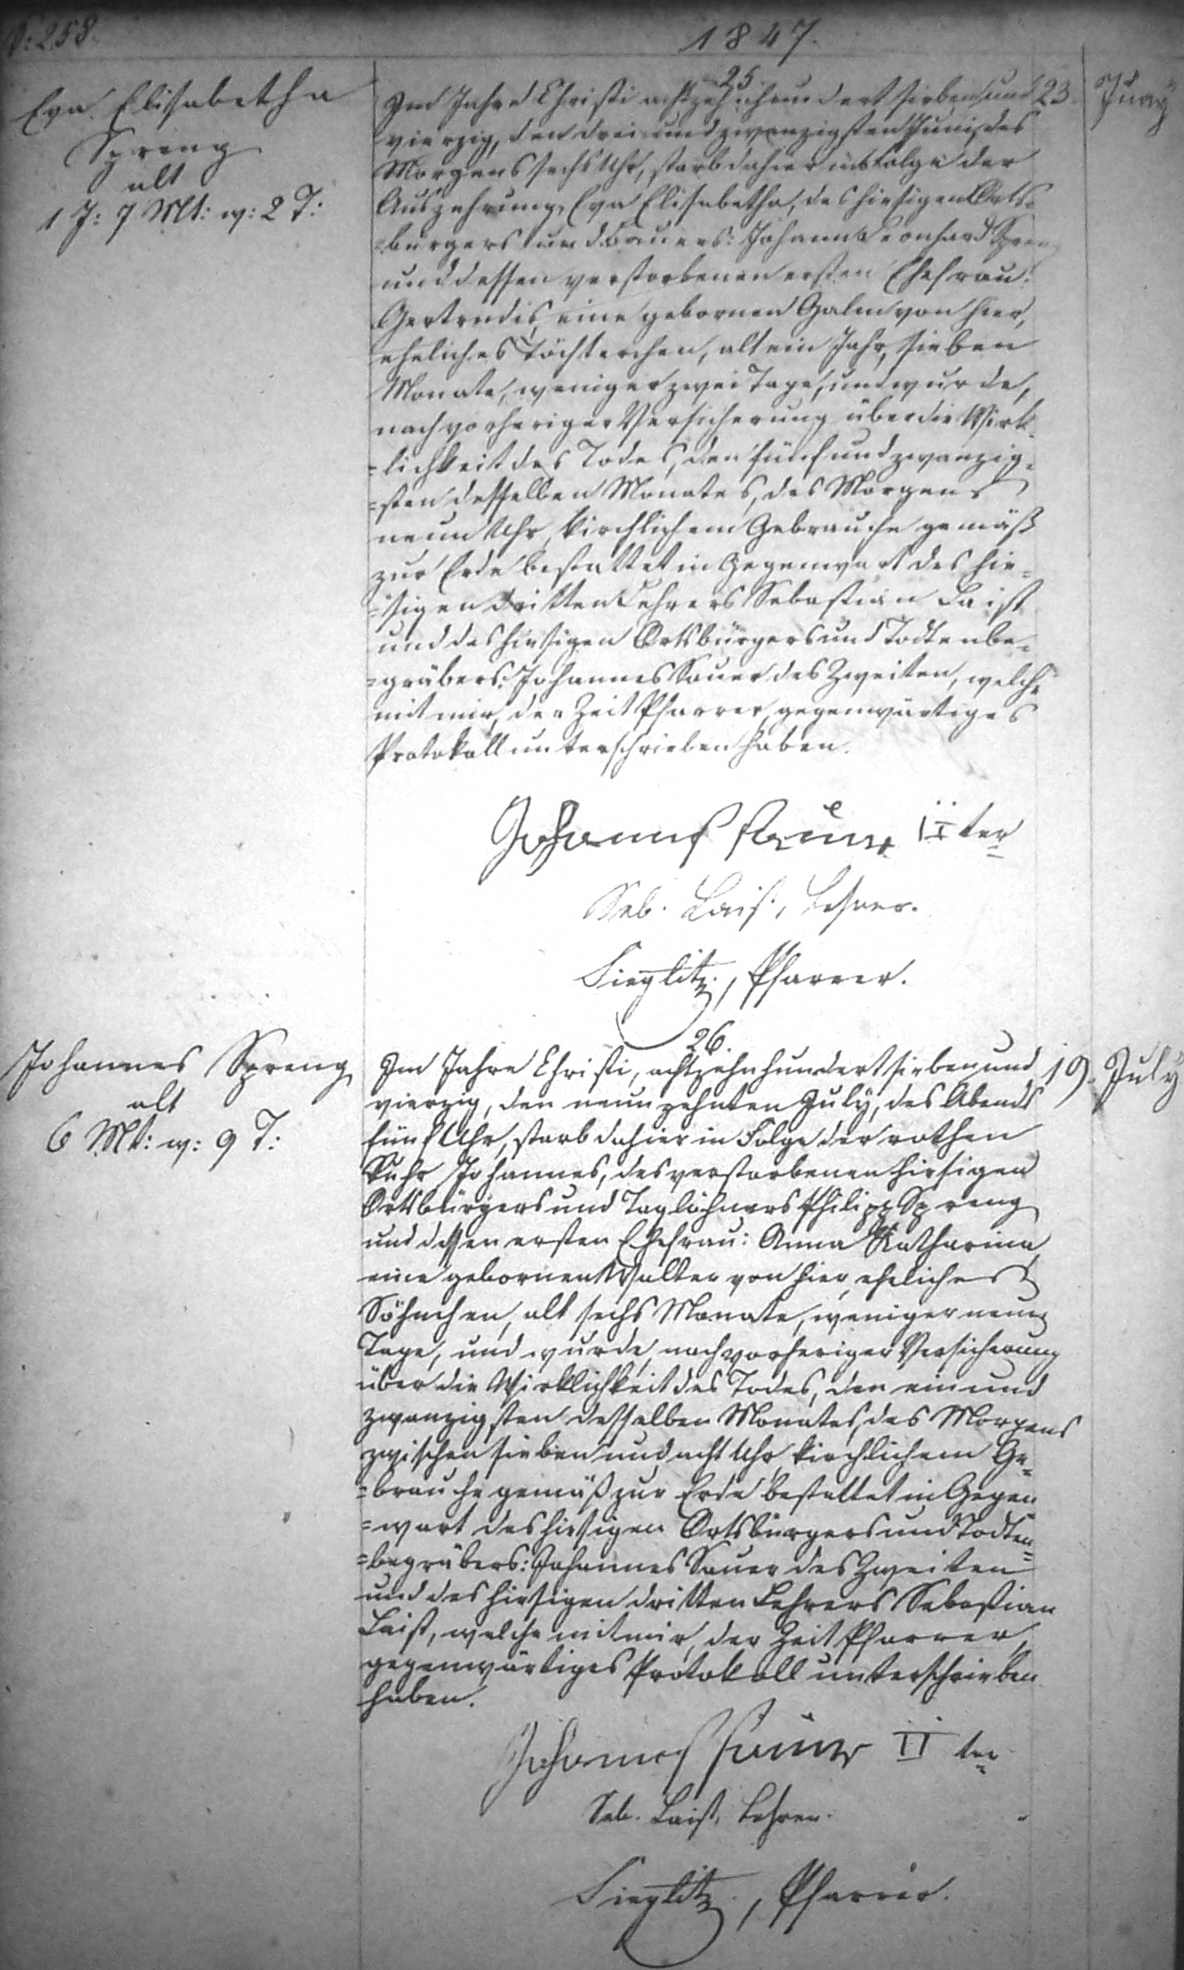 P: 258.
1847.
Eva Elisabetha
Spreng
alt
1 J: 7 Mt: w: 2 T:
25.
Im Jahre Christi achtzehnhundert sieben und
vierzig, den drei und zwanzigsten Juni, des
Morgens sechs Uhr, starb dahier in Folge der
Auszehrung, Eva Elisabetha, des hiesigen Orts-
=bürgers und Bauers: Johann Leonhard Spreng
und dessen verstorbenen ersten Ehefrau:
Gertrudis, eine gebornen Galm von hier,
eheliches Töchterchen, alt ein Jahr, sieben
Monate, weniger zwei Tage, und wurde,
nach vorheriger Versicherung über die Wirk-
=lichkeit des Todes, den fünf und zwanzig-
=sten desselben Monates, des Morgens
neun Uhr, kirchlichem Gebrauche gemäß
zur Erde bestattet in Gegenwart des hie-
=sigen dritten Lehrers Sebastian Laist
und des hiesigen Ortsbürgers und Todtenbe-
=gräbers: Johannes Sauer des Zweiten, welche
mit mir, der Zeit Pfarrer, gegenwärtiges
Protokoll unterschrieben haben.
23. Juny
Johannes Sauer IIter
Seb. Laist, Lehrer.
Sieglitz, Pfarrer.
Johannes Spreng
alt
6 Mt: w: 9 T:
26.
Im Jahre Christi, achtzehnhundert sieben und
vierzig, den neunzehnten July, des Abends
fünf Uhr, starb dahier in Folge der rothen
Ruhr Johannes, des verstorbenen hiesigen
Ortsbürgers und Taglöhners Philipp Spreng
und dessen ersten Ehefrau: Anna Katharina,
eine gebornen Walter von hier, eheliches
Söhnchen, alt sechs Monate, weniger neun
Tage, und wurde, nach vorheriger Versicherung
über die Wirklichkeit des Todes, den ein und
zwanzigsten desselben Monates, des Morgens
zwischen sieben und acht Uhr, kirchlichem Ge-
=brauche gemäß zur Erde bestattet in Gegen
=wart des hiesigen Ortsbürgers und Todten-
=begräbers: Johannes Sauer des Zweiten
und des hiesigen dritten Lehrers Sebastian
Laist, welche mit mir, der Zeit Pfarrer,
gegenwärtiges Protokoll unterschrieben
haben.
19. July
Johannes Sauer IIter
Seb. Laist, Lehrer.
Sieglitz, Pfarrer.